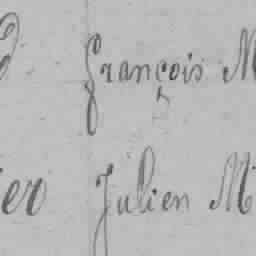 d François M
ier Julien M